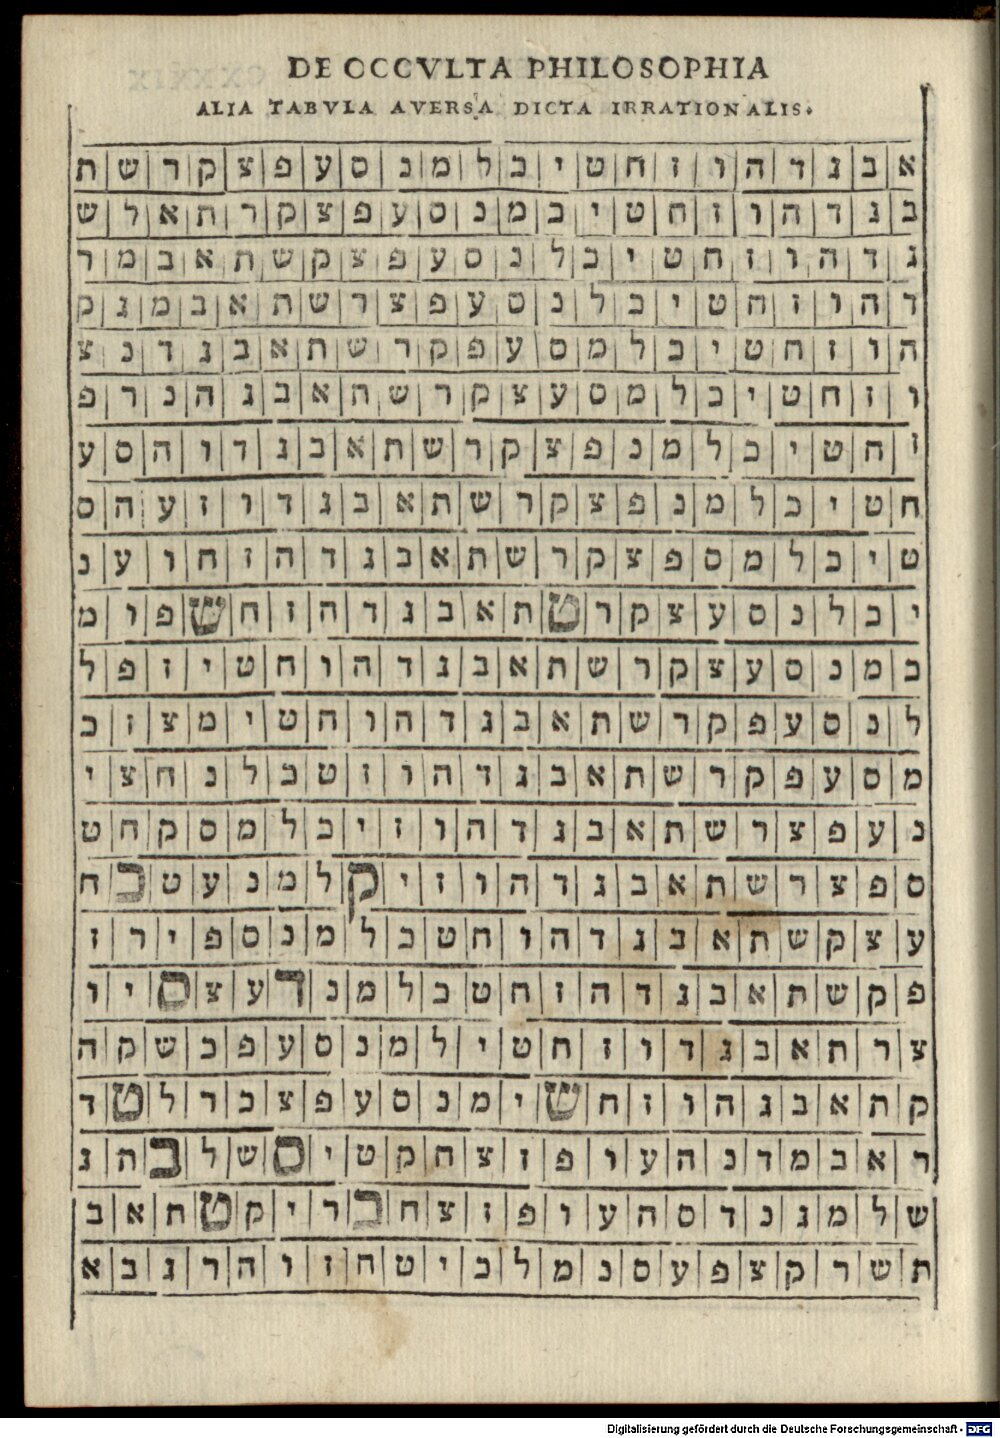 DE OCCVLTA PHILOSOPHIA
ALIA TABVLA AVERSA DICTA IRRATIONALIS.
א ב ג ד ה ו ז ח ט י כ ל מ נ ס ע פ צ ק ר ש ת
ב ג ד ה ו ז ח ט י כ מ נ ס ע פ צ ק ר ת א ל ש
ג ד ה ו ז ח ט י כ ל נ ס ע פ צ ק ש ת א ב מ ר
ד ה ו ז ח ט י כ ל נ ס ע פ צ ר ש ת א ב מ ג ק
ה ו ז ח ט י כ ל מ ס ע פ ק ר ש ת א ב ג ד נ צ
ו ז ח ט י כ ל מ ס ע צ ק ר ש ת א ב ג ה נ ר פ
ז ח ט י כ ל מ נ פ צ ק ר ש ת א ב ג ד ו ה ס ע
ח ט י כ ל מ נ פ צ ק ר ש ת א ב ג ד ו ז ע ה ס
ט י כ ל מ ס פ צ ק ר ש ת א ב ג ד ה ז ח ו ע נ
י כ ל נ ס ע צ ק ר ט ת א ב ג ד ה ז ח ש פ ו מ
כ מ נ ס ע צ ק ר ש ת א ב ג ד ה ו ח ט י ז פ ל
ל נ ס ע פ ק ר ש ת א ב ג ד ה ו ח ט י מ צ ז כ
מ ס ע פ ק ר ש ת א ב ג ד ה ו ז ט כ ל נ ח צ י
נ ע פ צ ר ש ת א ב ג ד ה ו ז י כ ל מ ס ק ח ט
ס פ צ ר ש ת א ב ג ד ה ו ז י ק ל מ נ ע ט כ ח
ע צ ק ש ת א ב ג ד ה ו ח ט כ ל מ נ ס פ י ר ז
פ ק ש ת א ב ג ד ה ז ח ט כ ל מ נ ד ע צ ס י ו
צ ר ת א ב ג ד ו ז ח ט י ל מ נ ס ע פ כ ש ק ה
ק ת א ב ג ה ו ז ח ש י מ נ ס ע פ צ כ ר ל ט ד
ר א ב מ ד נ ה ע ו פ ז צ ח ק ט י ס ש ל כ ת ג
ש ל מ ג נ ד ס ה ע ו פ ז צ ח כ ר י ק ט ת א ב
ת ש ר ק צ פ ע ס נ מ ל כ י ט ח ז ו ה ר ג ב א
Digitalisierung gefördert durch die Deutsche Forschungsgemeinschaft - DFG